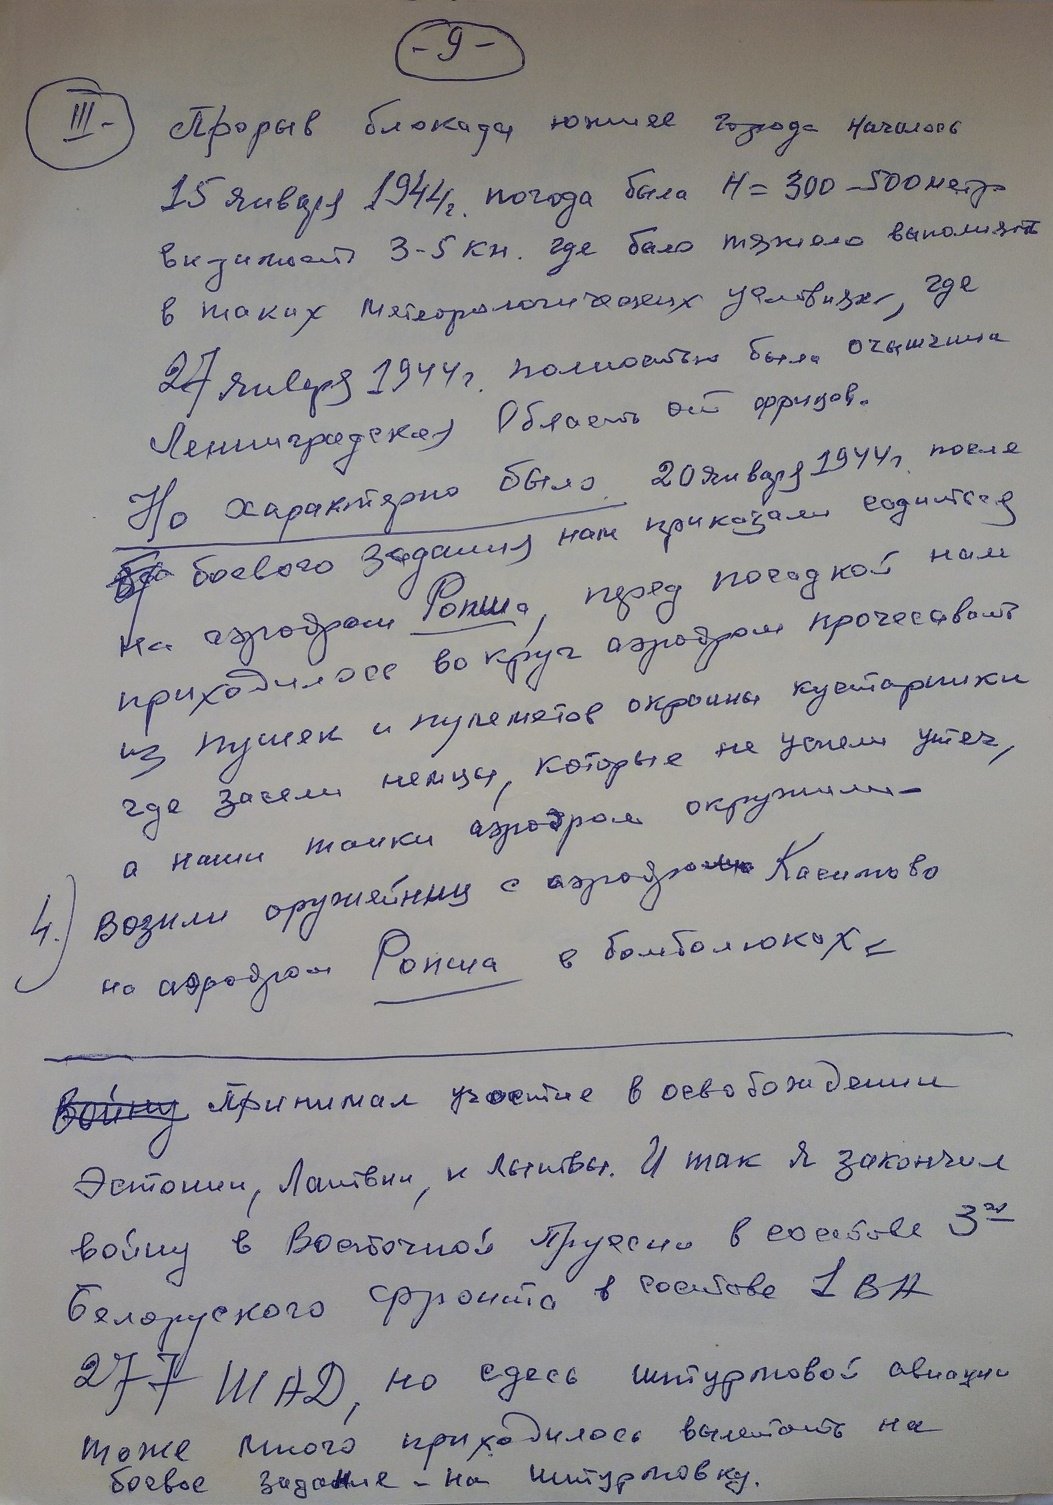 - 9 -
III - Прорыв блокады южнее города началось
15 января 1944г. погода была H = 300 - 500 метр
видимость 3-5 км. где было тяжело выполнять
в таких метеорологических условиях, где
27 января 1944г. полностью была очищена
Ленинградская Область от фрицов.
Но характерно было 20 января 1944г. после
боевого задания нам приказали садиться
на аэродром Ропша, перед посадкой нам
приходилось вокруг аэродром прочесывать
из пушек и пулеметов окраины кустарники
где засели немцы, которые не успели утеч,
а наши танки аэродром окружили -
4.) Возили оружейниц с аэродрома Касимово
на аэродром Ропша в бомболюках =
Войну Принимал участие в освобождении
Эстонии, Латвии, и Литвы. И так я закончил
войну в Восточной Пруссии в составе 3го
Белоруского фронта в составе 1 ВА
277 ШАД, но сдесь штурмовой авиации
тоже много приходилось вылетать на
боевое задание - на штурмовку.